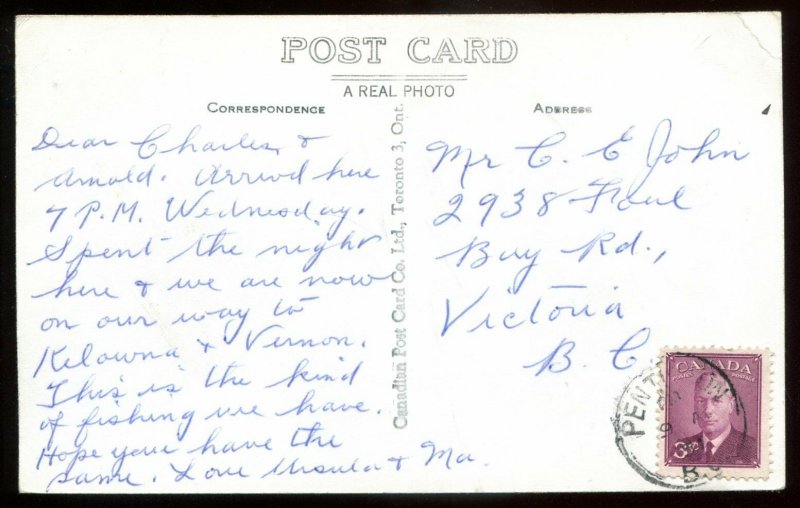 POST CARD
A REAL PHOTO
CORRESPONDENCE
ADDRESS
Dear Charles &
Arnold. Arrived here
7 P.M. Wednesday.
Spent the night
here & we are now
on our way to
Kelowna & Vernon.
This is the kind
of fishing we have.
Hope you have the
same. Love Ursula & Ma.
Canadian Post Card Co. Ltd., Toronto 3, Ont.
Mr C. E John
2938 Foul
Bay Rd.,
Victoria
B. C.
CANADA
POSTES POSTAGE
3
PENT
B.C